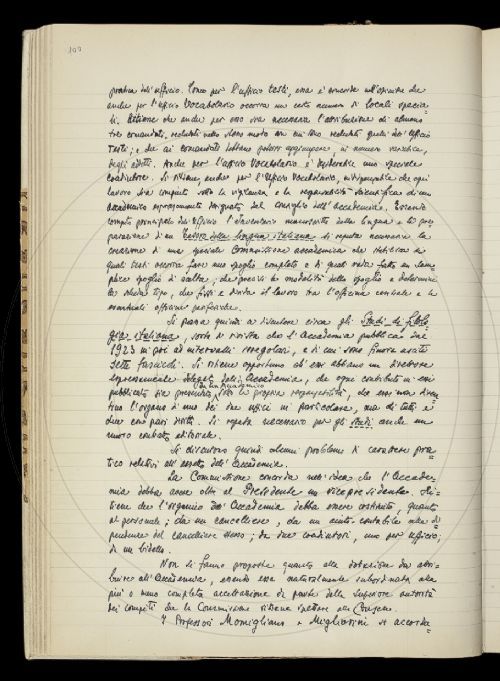 107
pratica dell'ufficio. Come per l'ufficio testi, essa è concorde nell'opinione che
anche per l'ufficio Vocabolario occorra un certo numero di locali spazio-
si. Ritiene che anche per esso sia necessaria l'attribuzione di almeno
tre comandati, reclutati nello stesso modo in cui sono reclutati quelli dell'ufficio
Testi; e che ai comandati debbano potersi aggiungere, in numero variabile,
degli addetti. Anche per l'ufficio Vocabolario è desiderabile uno speciale
coadiutore. Si ritiene anche per l'ufficio Vocabolario, indispensabile che ogni
lavoro sia compiuto sotto la vigilanza e la responsabilità scientifica di un
accademico espressamente designato dal consiglio dell'Accademia. Essendo
compito principale dell'ufficio l'inventario manoscritto della lingua e la pre-
parazione di un Tesoro della lingua italiana si reputa necessaria la
creazione di una speciale Commissione accademica che stabilisca di
quali testi occorra fare uno spoglio completo e di quali vada fatto un sem-
plice spoglio di scelta; che precisi le modalità dello spoglio e determini
la scheda tipo, che fissi e divida il lavoro tra l'officina centrale e le
eventuali officine periferiche.
Si passa quindi a discutere circa gli Studi di filolo-
gia italiana, sorta di rivista che l'Accademia pubblica dal
1923 in poi ad intervalli irregolari, e di cui sono finora usciti
sette fascicoli. Si ritiene opportuno che essi abbiano un direttore
espressamente delegato dall'Accademia, che ogni contributo in essi
pubblicato sia presentato da un Accademico sotto la propria responsabilità, che essi non diven-
tino l'organo di uno dei due uffici in particolare, ma di tutti e
due con pari diritti. Si reputa necessario per gli studi anche un
nuovo contratto editoriale.
Si discutono quindi alcuni problemi di carattere pra-
tico relativi all'assetto dell'Accademia.
La Commissione concorda nell'idea che l'Accade-
mia debba avere oltre al Presidente un vicepresidente. Ri-
tiene che l'organico dell'Accademia debba essere costituito, quanto
al personale; da un cancelliere, da un aiuto contabile alla di-
pendenza del cancelliere stesso; da due coadiutori, uno per ufficio;
di un bidello.
Non si fanno proposte quanto alla dotazione da attri-
buire all'Accademia, essendo essa naturalmente subordinata alla
più o meno completa accettazione da parte della Superiore autorità
dei compiti che la Commissione ritiene spettare alla Crusca.
I Professori Momigliano e Migliorini si accorda-